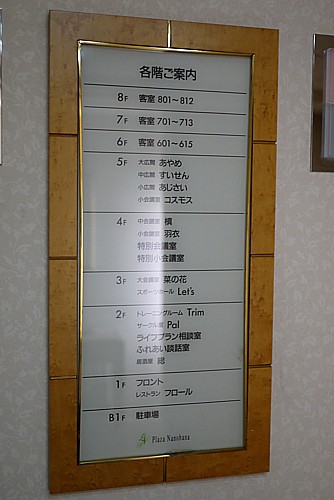 各階ご案内
8F 客室 801～812
7F 客室 701～713
6F 客室 601～615
5F 大広間 あやめ
中広間 すいせん
小広間 あじさい
小会議室 コスモス
4F 中会議室 槙
小会議室 羽衣
特別会議室
特別小会議室
3F 大会議室 菜の花
スポーツホール Let's
2F トレーニングルーム Trim
サークル室 Pal
ライフプラン相談室
ふれあい談話室
居酒屋
1F フロント
レストラン フロール
B1F 駐車場
Plaza Nanohana